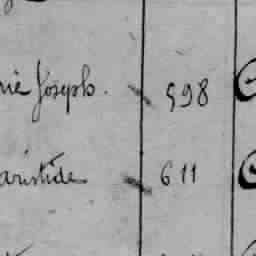 rie Joseph. 598
aristide 611